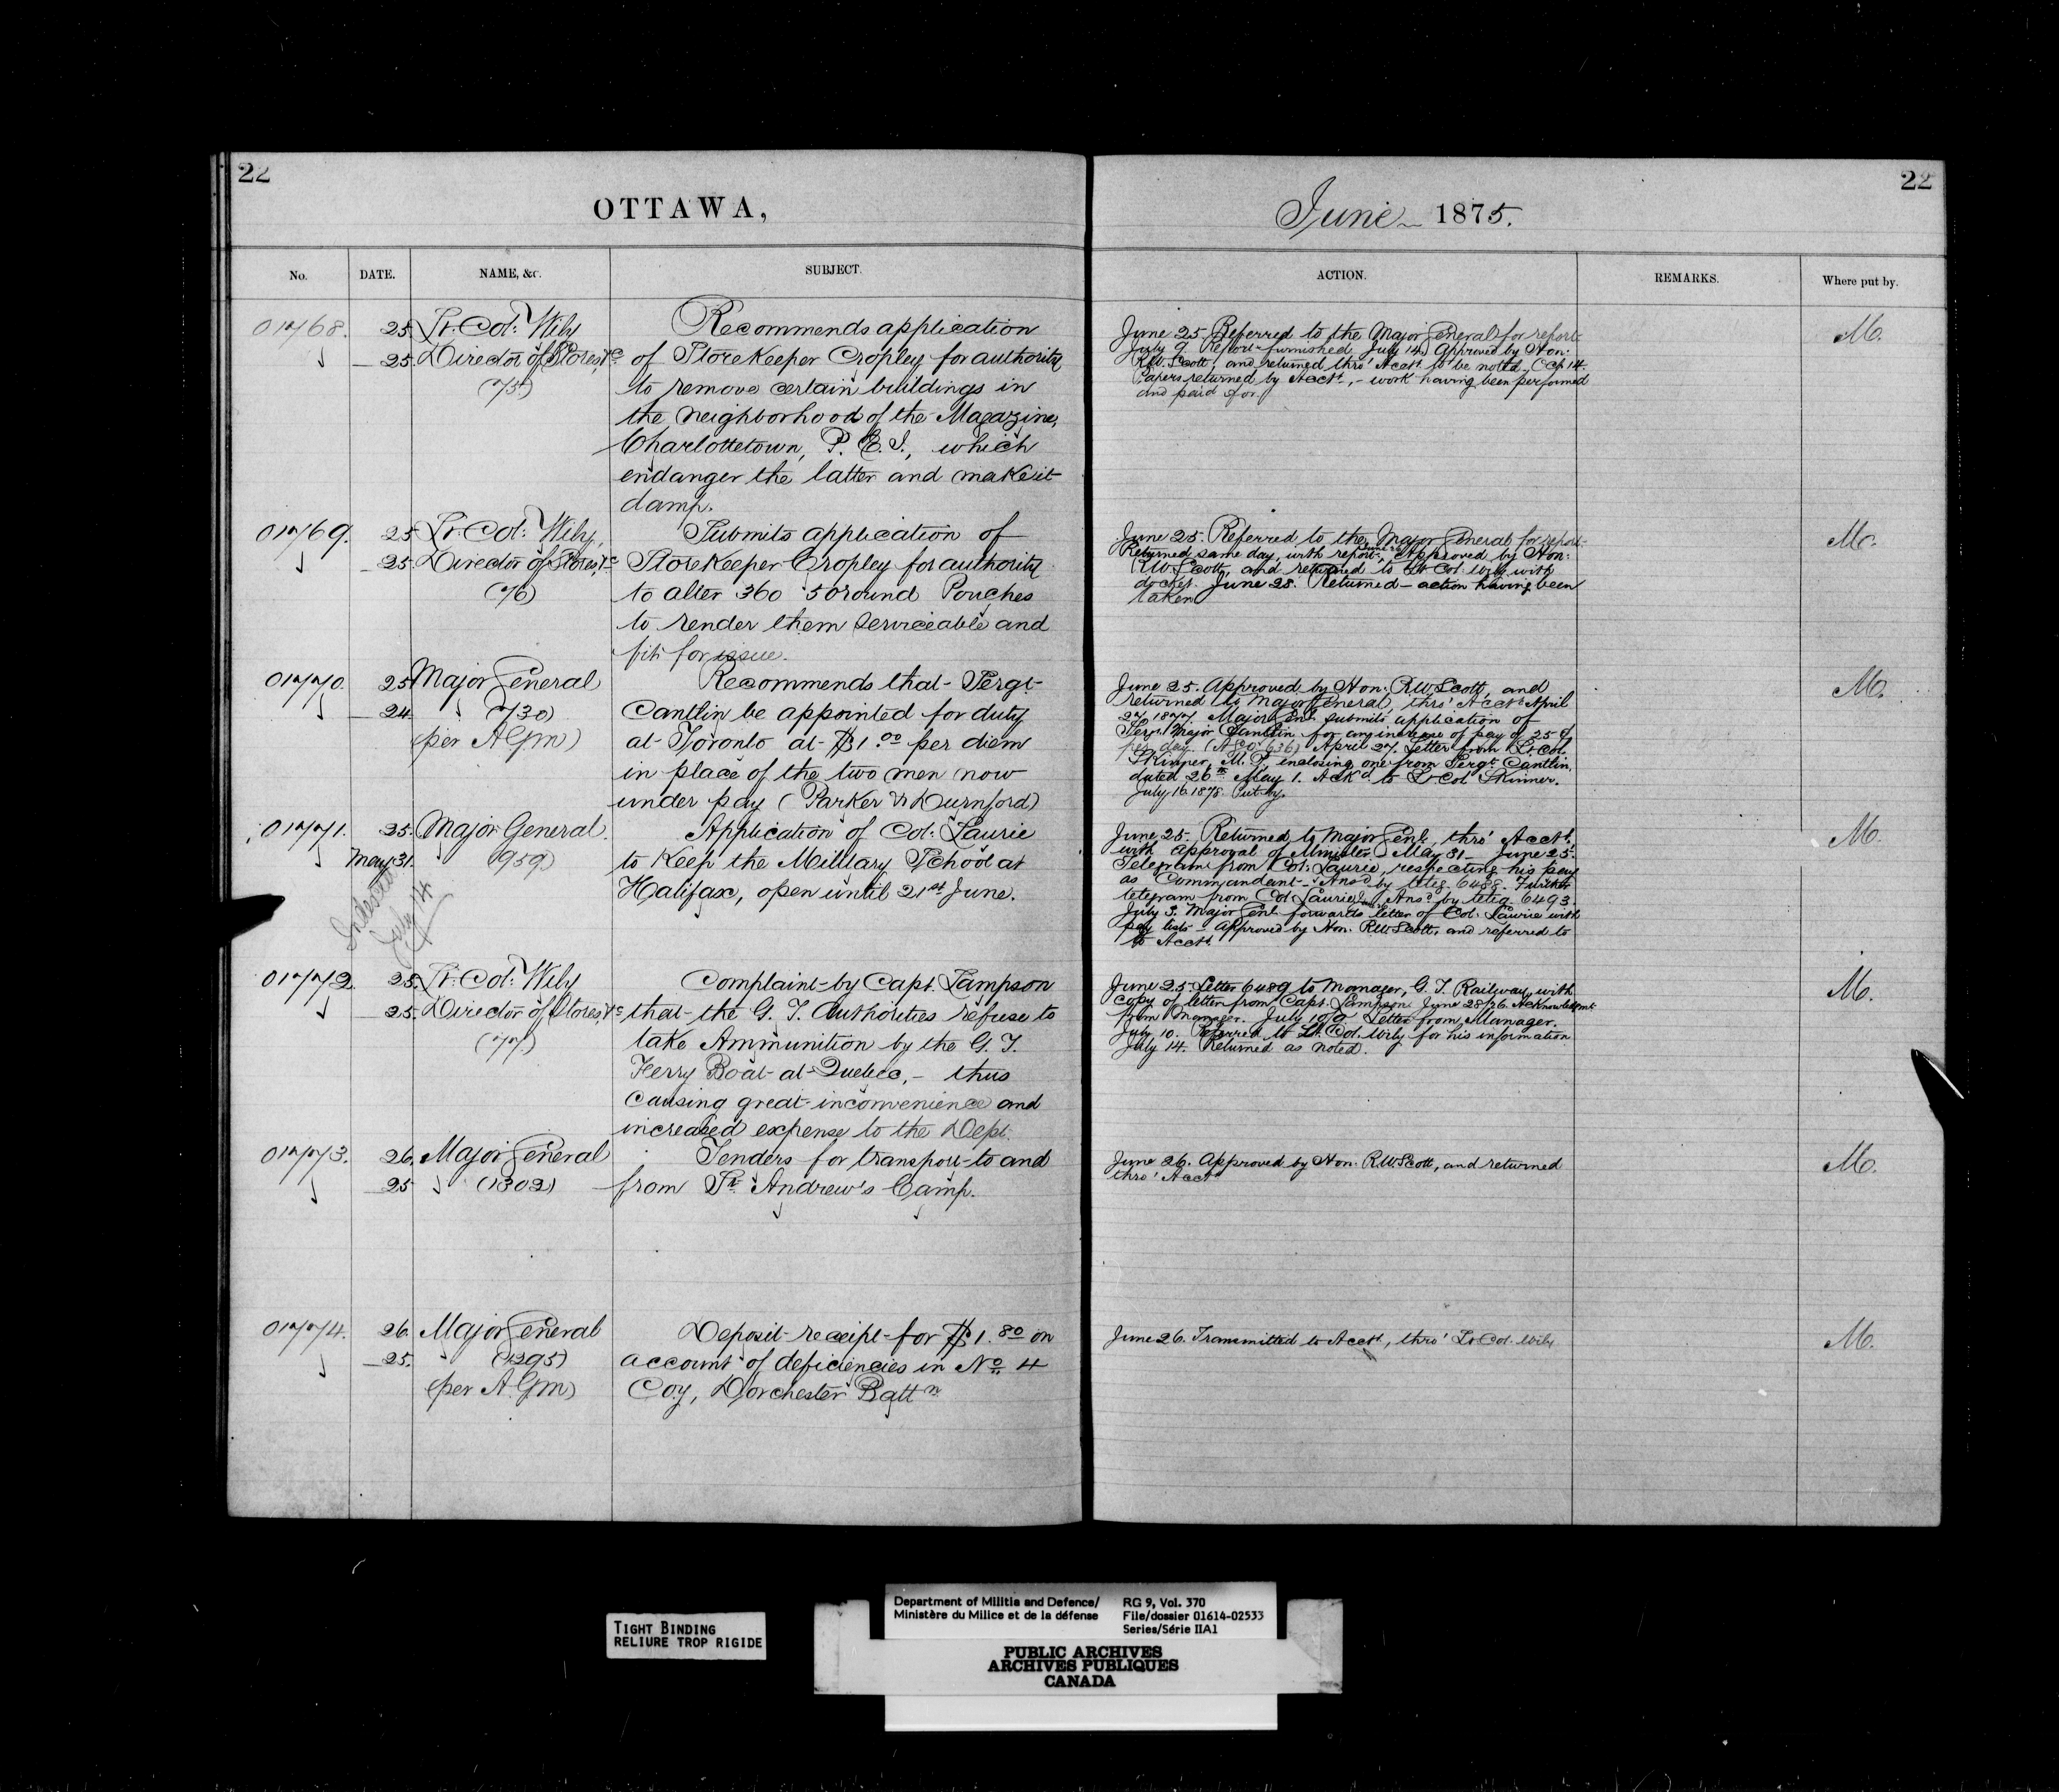 22
OTTAWA,
No. DATE. NAME, &c. SUBJECT.
01768. 25 Lt. Col: Wily Recommends application
25. Director of Stores, &c of StoreKeeper Cropley for authority
(75) to remove certain buildings in
the neighborhood of the Magazine,
Charlottetown, P. E. I., which
endanger the latter and make it
damp.
01769. 25 Lt. Col: Wily, Submits application of
25 Director of Stores, &c StoreKeeper Cropley for authority
(76) to alter 360 50 round Pouches
to render them serviceable and
fit for issue.
01770. 25 Major General Recommends that Sergt
24. (730) Cantlin be appointed for duty
(per AGM) at Toronto at $1.00 per diem
in place of the two men now
under pay (Parker & Durnford)
01771. 25. Major General. Application of Col: Laurie
May 31. (959) to Keep the Military School at
Halifax, open until 21st June.
July 14
01772. 25. Lt. Col: Wily Complaint by Capt. Lampson
25. Director of Stores, &c that the G. T. Authorities refuse to
(77.) take Ammunition by the G. T.
Ferry Boat at Quebec, – thus
causing great inconvenience and
increased expense to the Dept.
01773. 26. Major General Tenders for transport to and
25 (1302) from St. Andrew's Camp.
01774. 26. Major General Deposit receipt for $1.80 on
25. (1295) account of deficiencies in No. 4
(per A.G.M) Coy, Dorchester Battn
22
June 1875.
ACTION. REMARKS. Where put by.
June 25. Referred to the Major General for report M.
July 9. Report furnished July 14. Approved by Hon:
R.W. Scott, and returned thro' Acctt. to be noted. Oct 14.
Papers returned by Acctt, – work having been performed
and paid for.
June 25. Referred to the Major General for report M.
Returned same day, with report. Approved by Hon:
R.W. Scott, and returned to Lt Col. Wily with
docket. June 28. Returned – action having been
taken
June 25. Approved by Hon. R.W. Scott, and M.
returned to Major General, thro' Acctt. April
27, 1877. Major Genl. submits application of
Sergt. Major Cantlin for an increase of pay of 25 ¢
per day. April 27. Letter from Lt. Col.
Skinner, M.P., enclosing one from Sergt. Cantlin,
dated 26th May 1. Ackd. to Lt Col Skinner.
July 16. 1878. Put by.
June 25. Returned to Major Genl., thro' Acctt. M.
with approval of Minister May 31 – June 25.
Telegram from Col: Laurie, respecting his pay
as Commandant – Ansd by teleg. 6488. Further
telegram from Col Laurie Ansd by teleg 6493.
July 3. Major Genl. forwards letter of Col. Laurie with
pay lists – Approved by Hon. R.W. Scott, and referred to
to Acctt.
June 25. Letter 6489 to Manager, G. T. Railway, with M.
copy of letter from Capt. Lampson. June 28/26. Acknowledgmt
from Manager. July 10/9 Letter from Manager.
July 10. Referred to Lt. Col. Wily for his information
July 14. Returned as noted.
June 26. Approved by Hon: R.W. Scott, and returned M.
thro' Acctt
June 26. Transmitted to Acctt, thro' Lt Col. Wily M.
TIGHT BINDING
RELIURE TROP RIGIDE
Department of Militia and Defence/ RG 9, Vol. 370
Ministère du Milice et de la défense File/dossier 01614-02533
Series/Série IIA1
PUBLIC ARCHIVES
ARCHIVES PUBLIQUES
CANADA